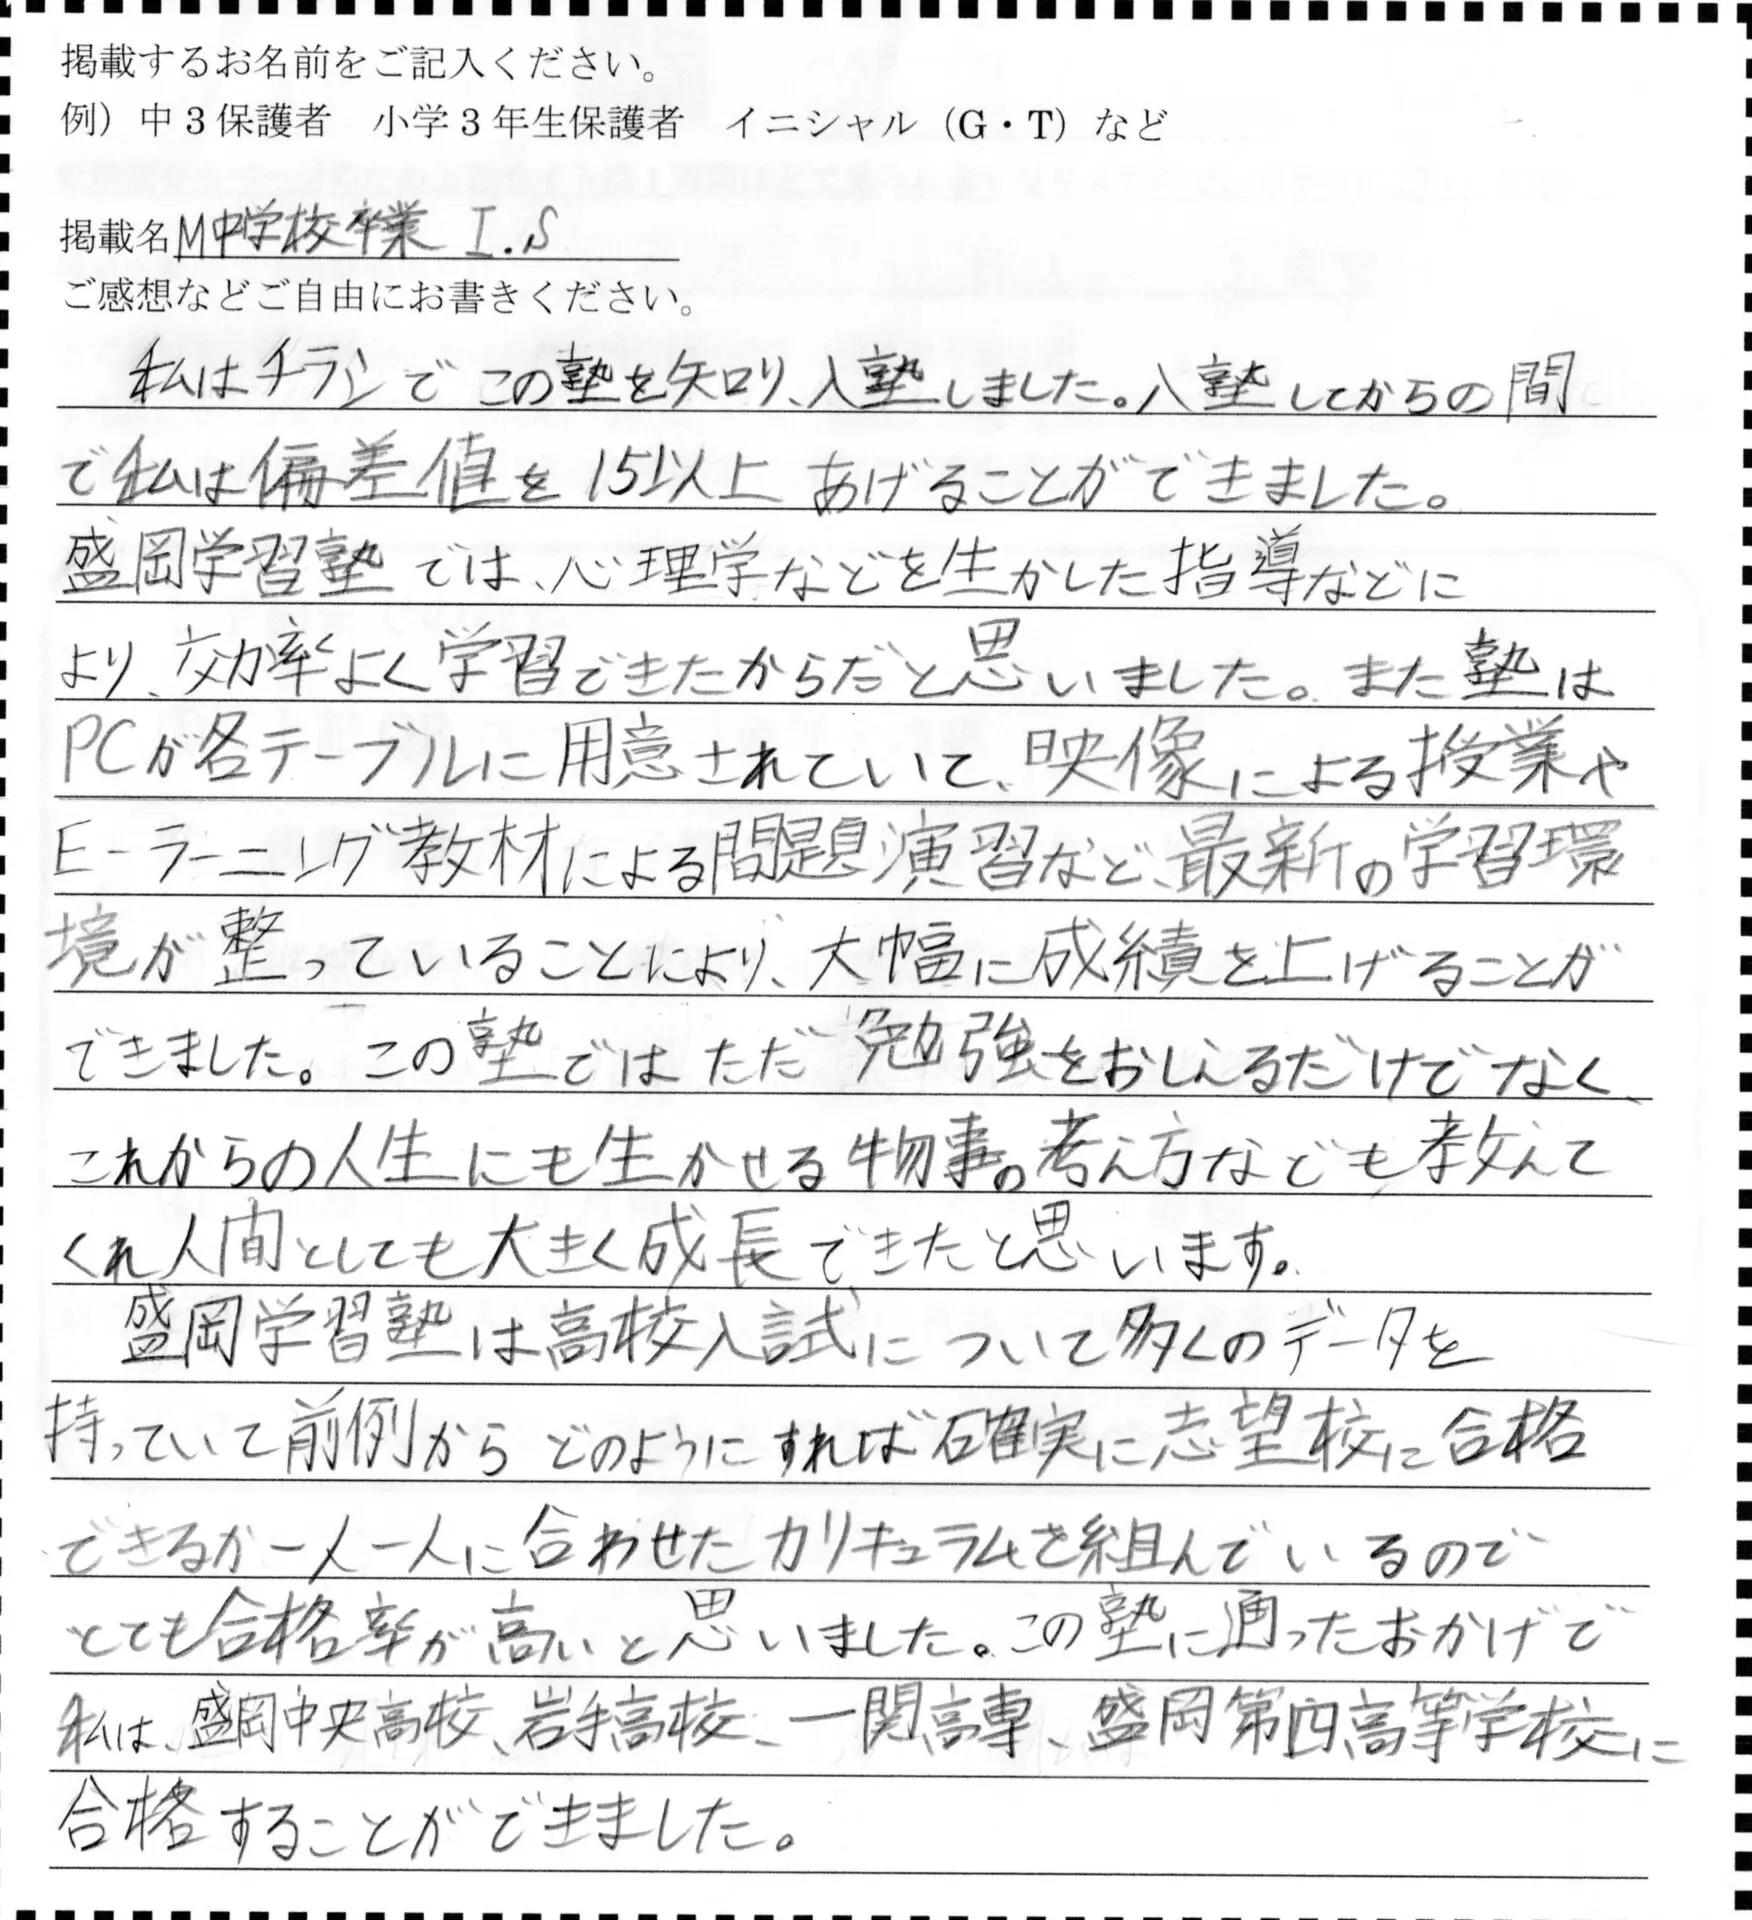 掲載するお名前をご記入ください。
例）中3保護者　小学3年生保護者　イニシャル（G・T）など
掲載名 M中学校卒業 I.S
ご感想などご自由にお書きください。
私はチラシでこの塾を知り、入塾しました。入塾してからの間
で私は偏差値を15以上あげることができました。
盛岡学習塾では、心理学などを生かした指導などに
より、効率よく学習できたからだと思いました。また塾は
PCが各テーブルに用意されていて、映像による授業や
E-ラーニング教材による問題演習など、最新の学習環
境が整っていることにより、大幅に成績を上げることが
できました。この塾ではただ勉強をおしえるだけでなく、
これからの人生にも生かせる物事の考え方なども教えて
くれ人間としても大きく成長できたと思います。
盛岡学習塾は高校入試について多くのデータを
持っていて前例からどのようにすれば確実に志望校に合格
できるか一人一人に合わせたカリキュラムを組んでいるので
とても合格率が高いと思いました。この塾に通ったおかげで
私は、盛岡中央高校、岩手高校、一関高専、盛岡第四高等学校に
合格することができました。